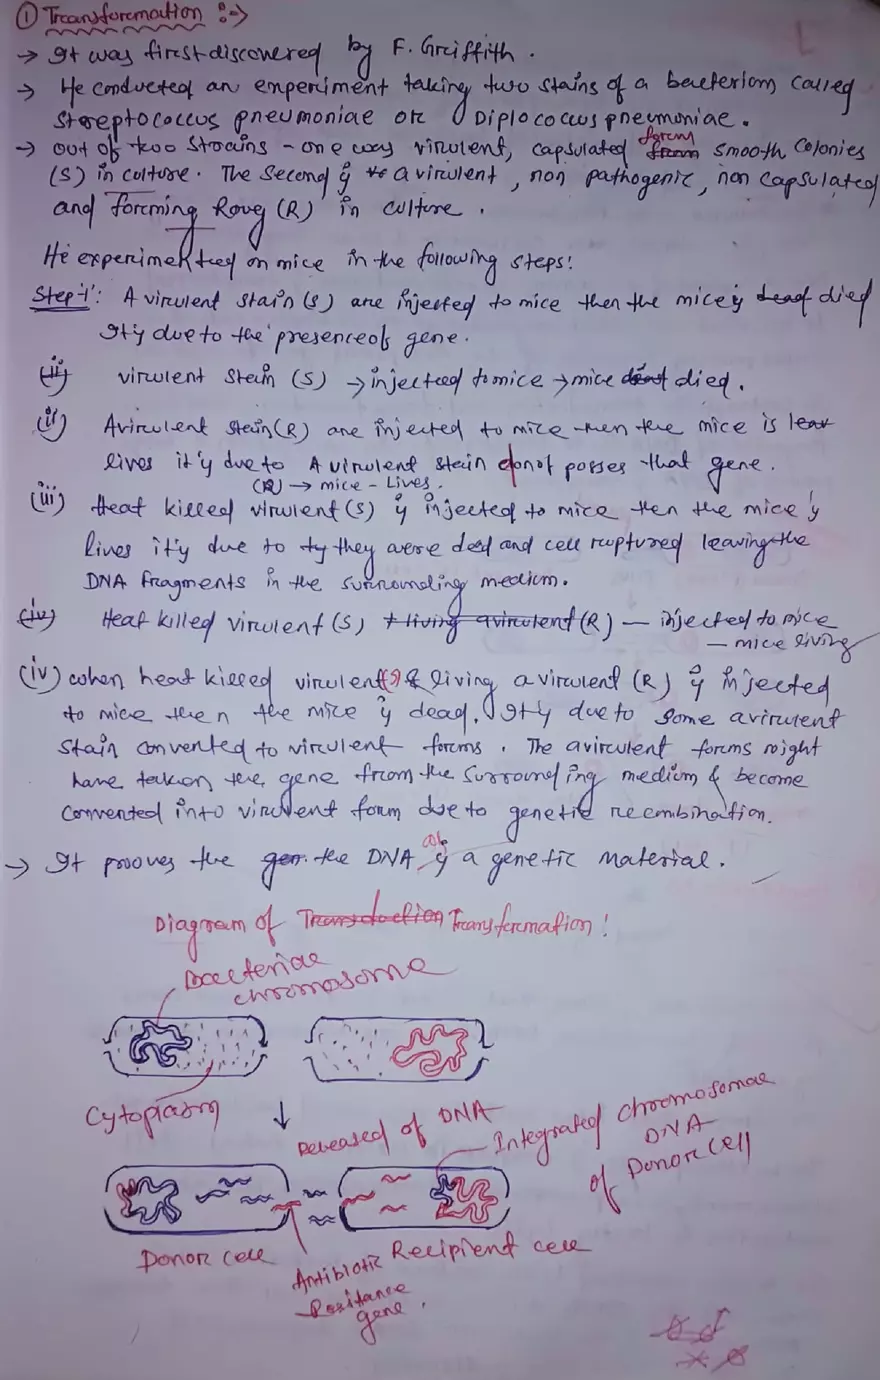 ① Transformation :→
→ It was first discovered by F. Griffith.
→ He conducted an experiment taking two stains of a bacteriom called
Streptococcus pneumoniae or Diplococcus pneumoniae.
→ Out of two Strains - one way virulent, capsulated form smooth colonies
(S) in culture. The Second y avirulent, non pathogenic, non capsulated
and forming Roug (R) in culture.
He experimented on mice in the following steps!
Step-1: A virulent stain (s) are injected to mice then the mice y died
Ity due to the presence of gene.
(ii) virulent Stein (S) → injecteed to mice → mice died.
(ii) Avirulent stein (R) are injected to mice then the mice is
lives it'y due to Avirulent stein donot posses that gene.
(R) → mice - Lives.
(iii) Heat killed virulent (S) y injected to mice then the mice'y
lives it'y due to they were ded and cell ruptured leaving the
DNA fragments in the surrounding medium.
(iv) Heat killed virulent (S) + living avirulent (R) — injected to mice
— mice living
(iv) when heat killed virulent(S) & living avirulent (R) y injected
to mice then the mice y dead. Ity due to some avirulent
Stain converted to virulent forms. The avirulent forms might
have taken the gene from the surrounding medium & become
converted into virulent form due to genetic recombination.
→ It prooves the the DNA y a genetic material.
Diagram of Transduction Transformation!
Bacteriae
chromosome
Cytoplasm
↓
Released of DNA
Integrated chromosomae
DNA
of Donor cell
Donor cell
Recipient cell
Antibiotic
Resitance
gene.